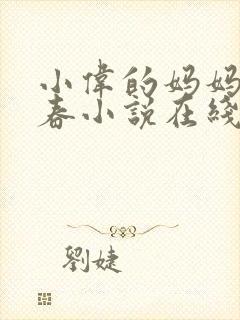 小偉的妈妈
春小説在綫
劉婕